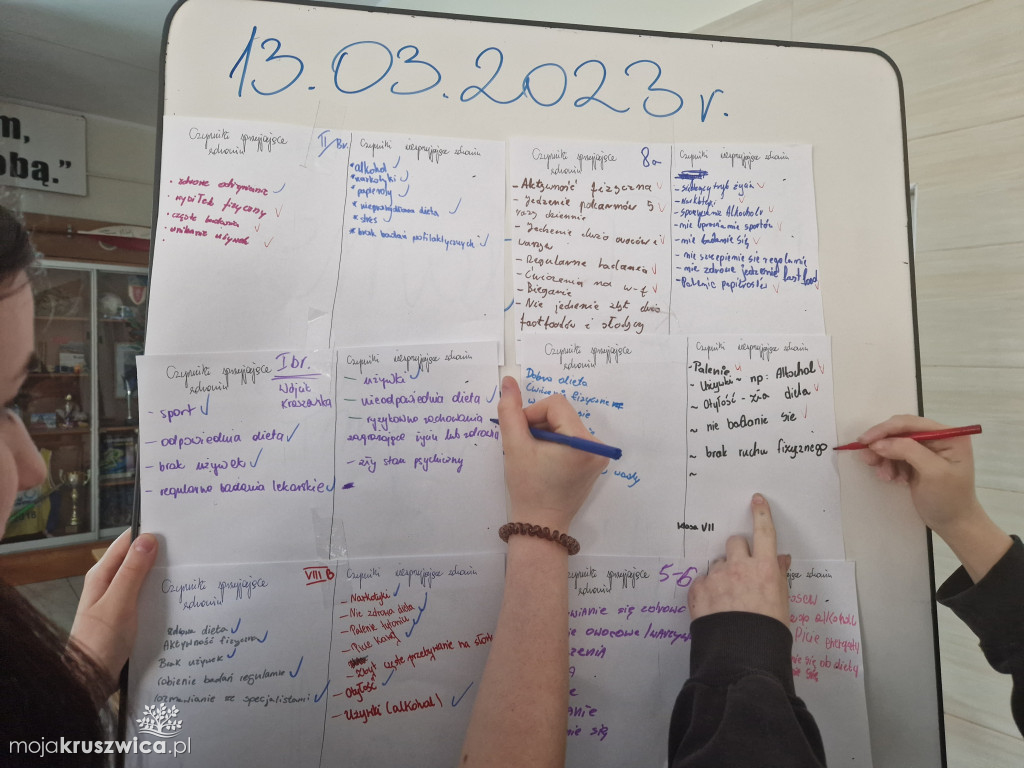 13.03.2023 r.
m,
obą."
Czynniki sprzyjające
zdrowiu
II Br.
• zdrowe odżywianie
• wysiłek fizyczny
• częste badania
• unikanie używek
Czynniki niesprzyjające zdrowiu
• alkohol
• narkotyki
• papierosy
• nieodpowiednia dieta
• stres
• brak badań profilaktycznych
Czynniki sprzyjające
zdrowiu
8a
- Aktywność fizyczna
- Jedzenie pokarmów 5
razy dziennie
- Jedzenie dużo owoców i
warzyw
- Regularne badania
- Ćwiczenia na w-f
- Bieganie
- Nie jedzenie zbyt dużo
fastfoodów i słodyczy
Czynniki niesprzyjające zdrowiu
- siedzący tryb życia
- Narkotyki
- spożywanie Alkoholu
- nie uprawianie sportów
- nie badanie się
- nie szczepienie się regularnie
- nie zdrowe jedzenie fast food
- Palenie papierosów
Czynniki sprzyjające
zdrowiu
I br.
Wojak
Kraszewska
- sport
- odpowiednia dieta
- brak używek
- regularne badania lekarskie
Czynniki niesprzyjające zdrowiu
- używki
- nieodpowiednia dieta
- ryzykowne zachowania
zagrażające życiu lub zdrowiu
- zły stan psychiczny
Czynniki sprzyjające
zdrowiu
Dobra dieta
Ćwiczenia fizyczne
się
wody
Czynniki niesprzyjające zdrowiu
- Palenie
- Używki - np: Alkohol
- Otyłość - zła dieta
~ nie badanie się
~ brak ruchu fizycznego
~
klasa VII
Czynniki sprzyjające
zdrowiu
VIII B
zdrowa dieta
Aktywność fizyczna
Brak używek
robienie badań regularnie
rozmawianie ze specjalistami
Czynniki niesprzyjające zdrowiu
- Narkotyki
- Nie zdrowa dieta
- Palenie tytoniu
- Picie kawy
- Zbyt częste przebywanie na słońcu
- Otyłość
- Używki (alkohol)
sprzyjające
5-6
wianie się zdrowo
ie owocowe/warzywne
zenia
ie
anie
ie się
zdrowiu
Picie energoli
nie się
mojakruszwica.pl